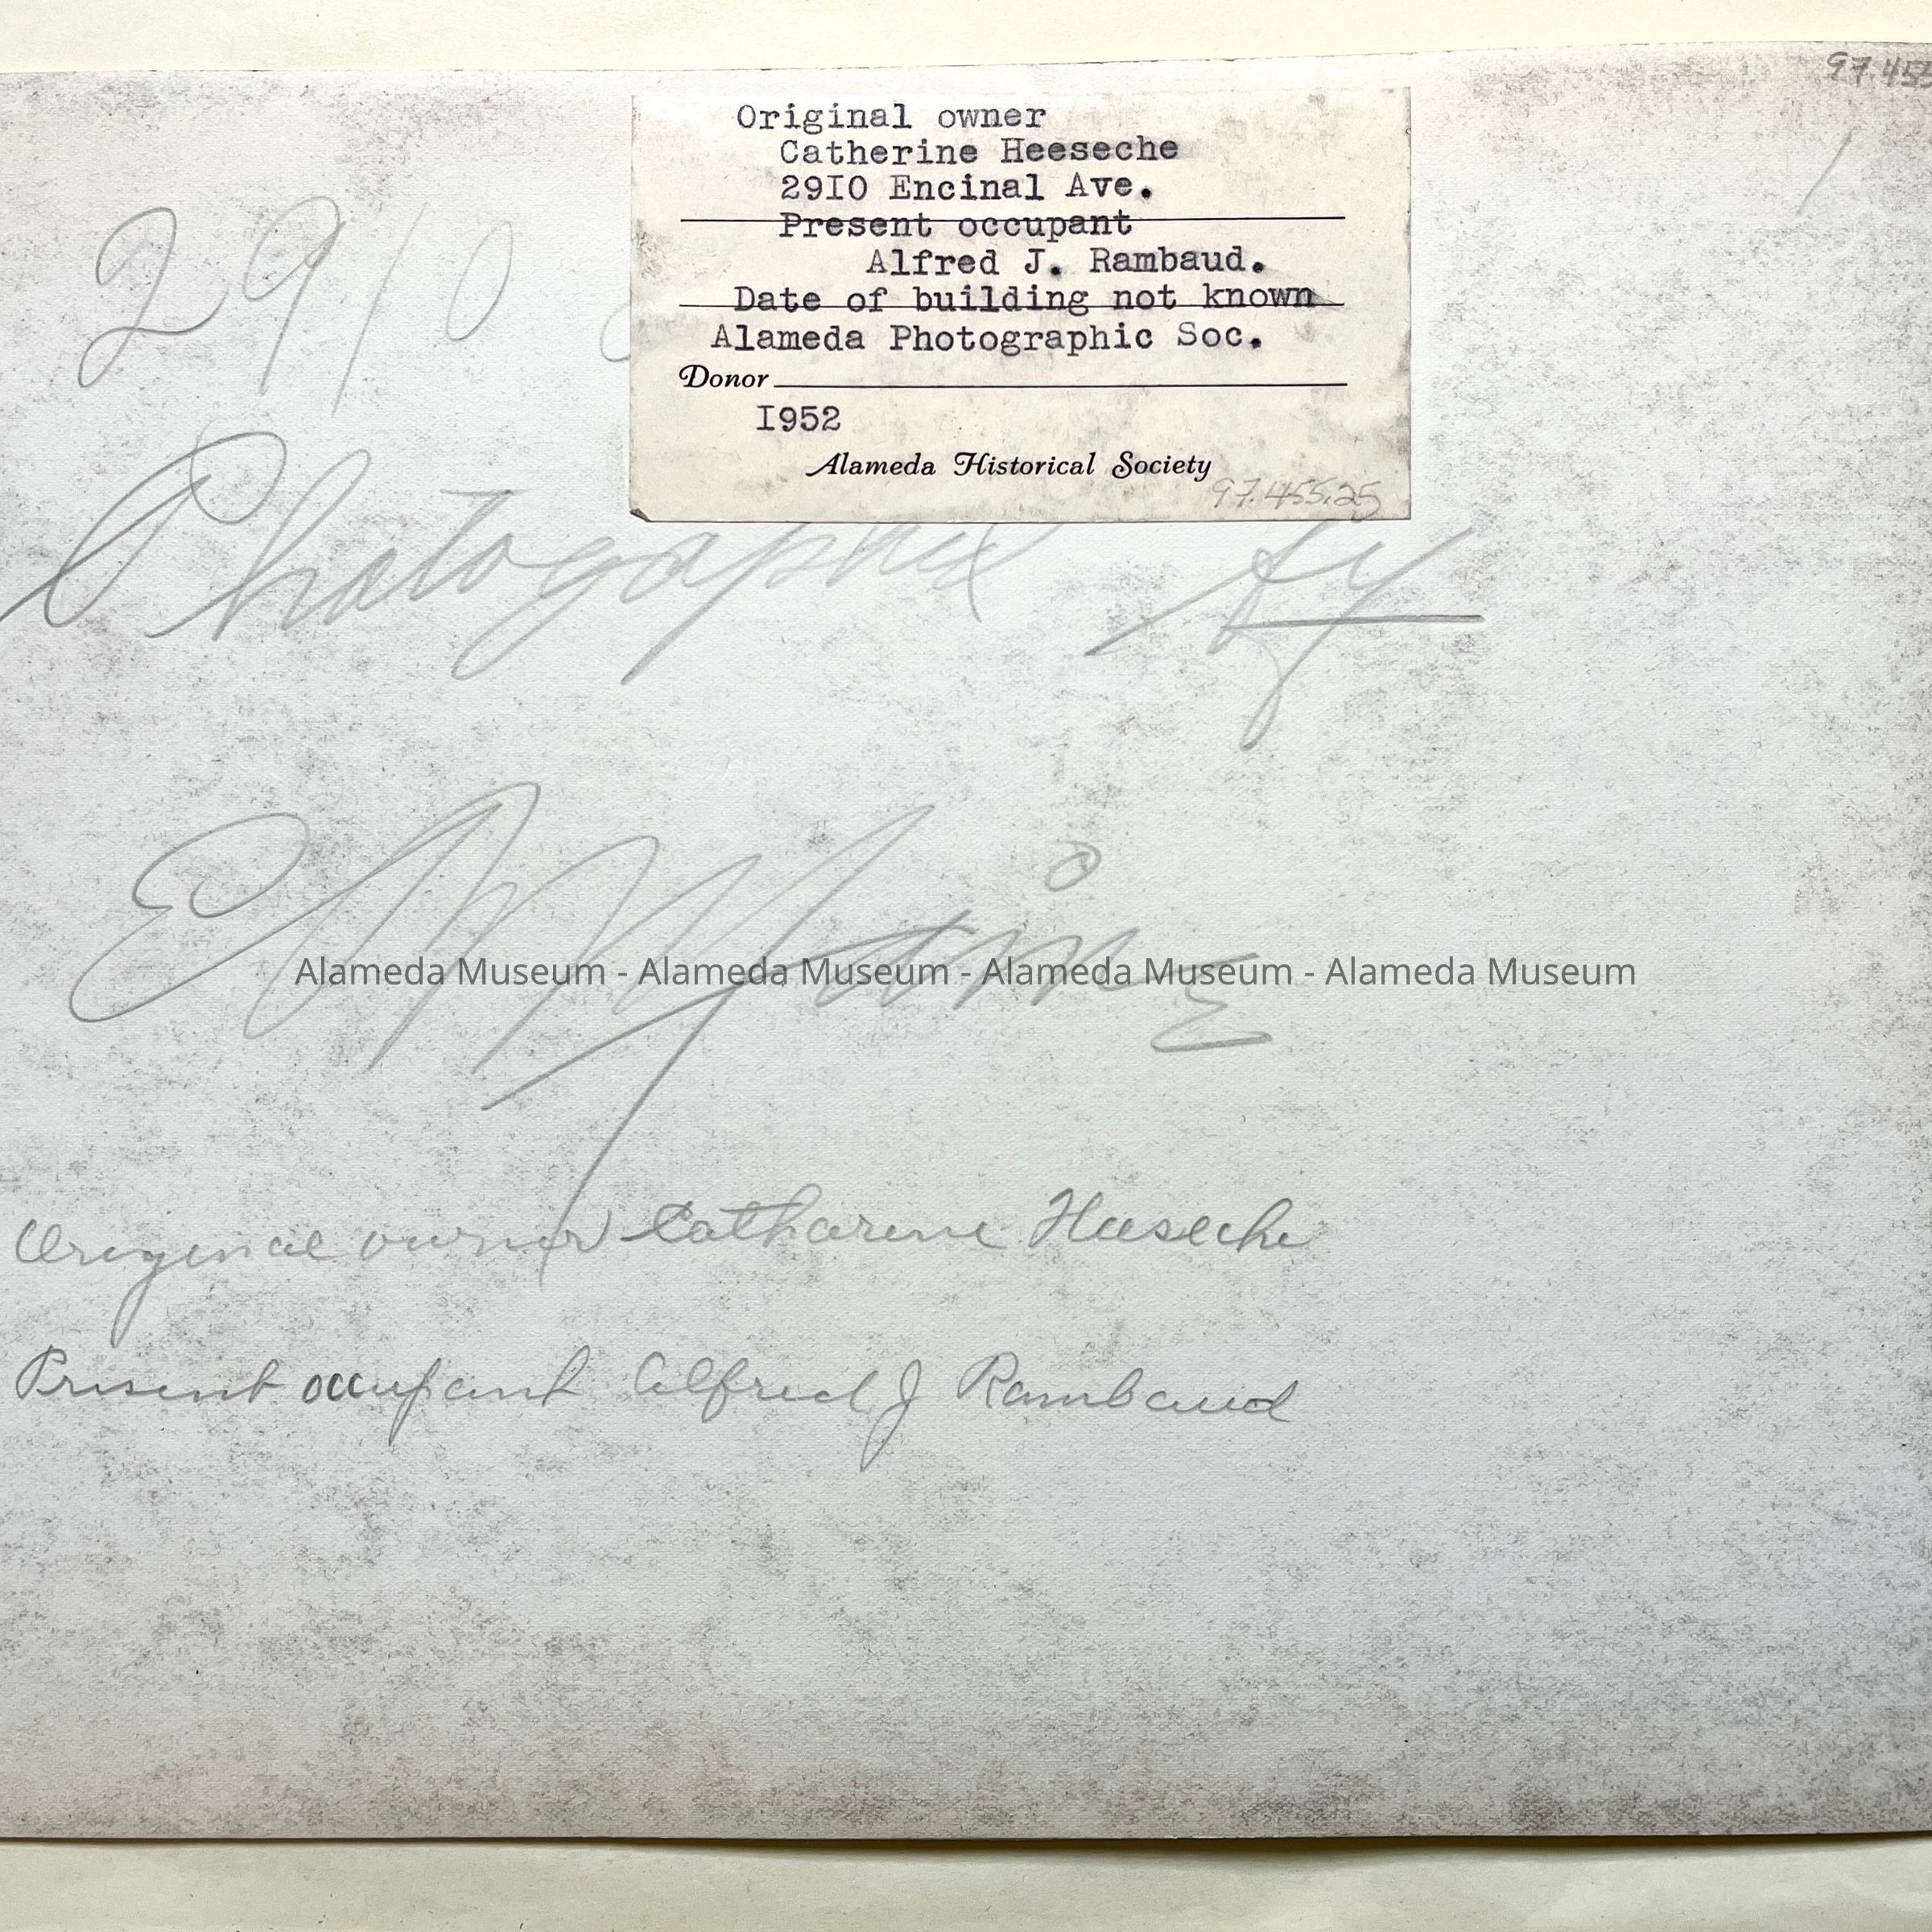 97.455
Original owner
Catherine Heeseche
29I0 Encinal Ave.
Present occupant
Alfred J. Rambaud.
Date of building not known
Alameda Photographic Soc.
Donor
I952
Alameda Historical Society
97.455.25
2910
Photographed by
Alameda Museum - Alameda Museum - Alameda Museum - Alameda Museum
Original owner Catharine Heeseche
Present occupant Alfred J Rambaud